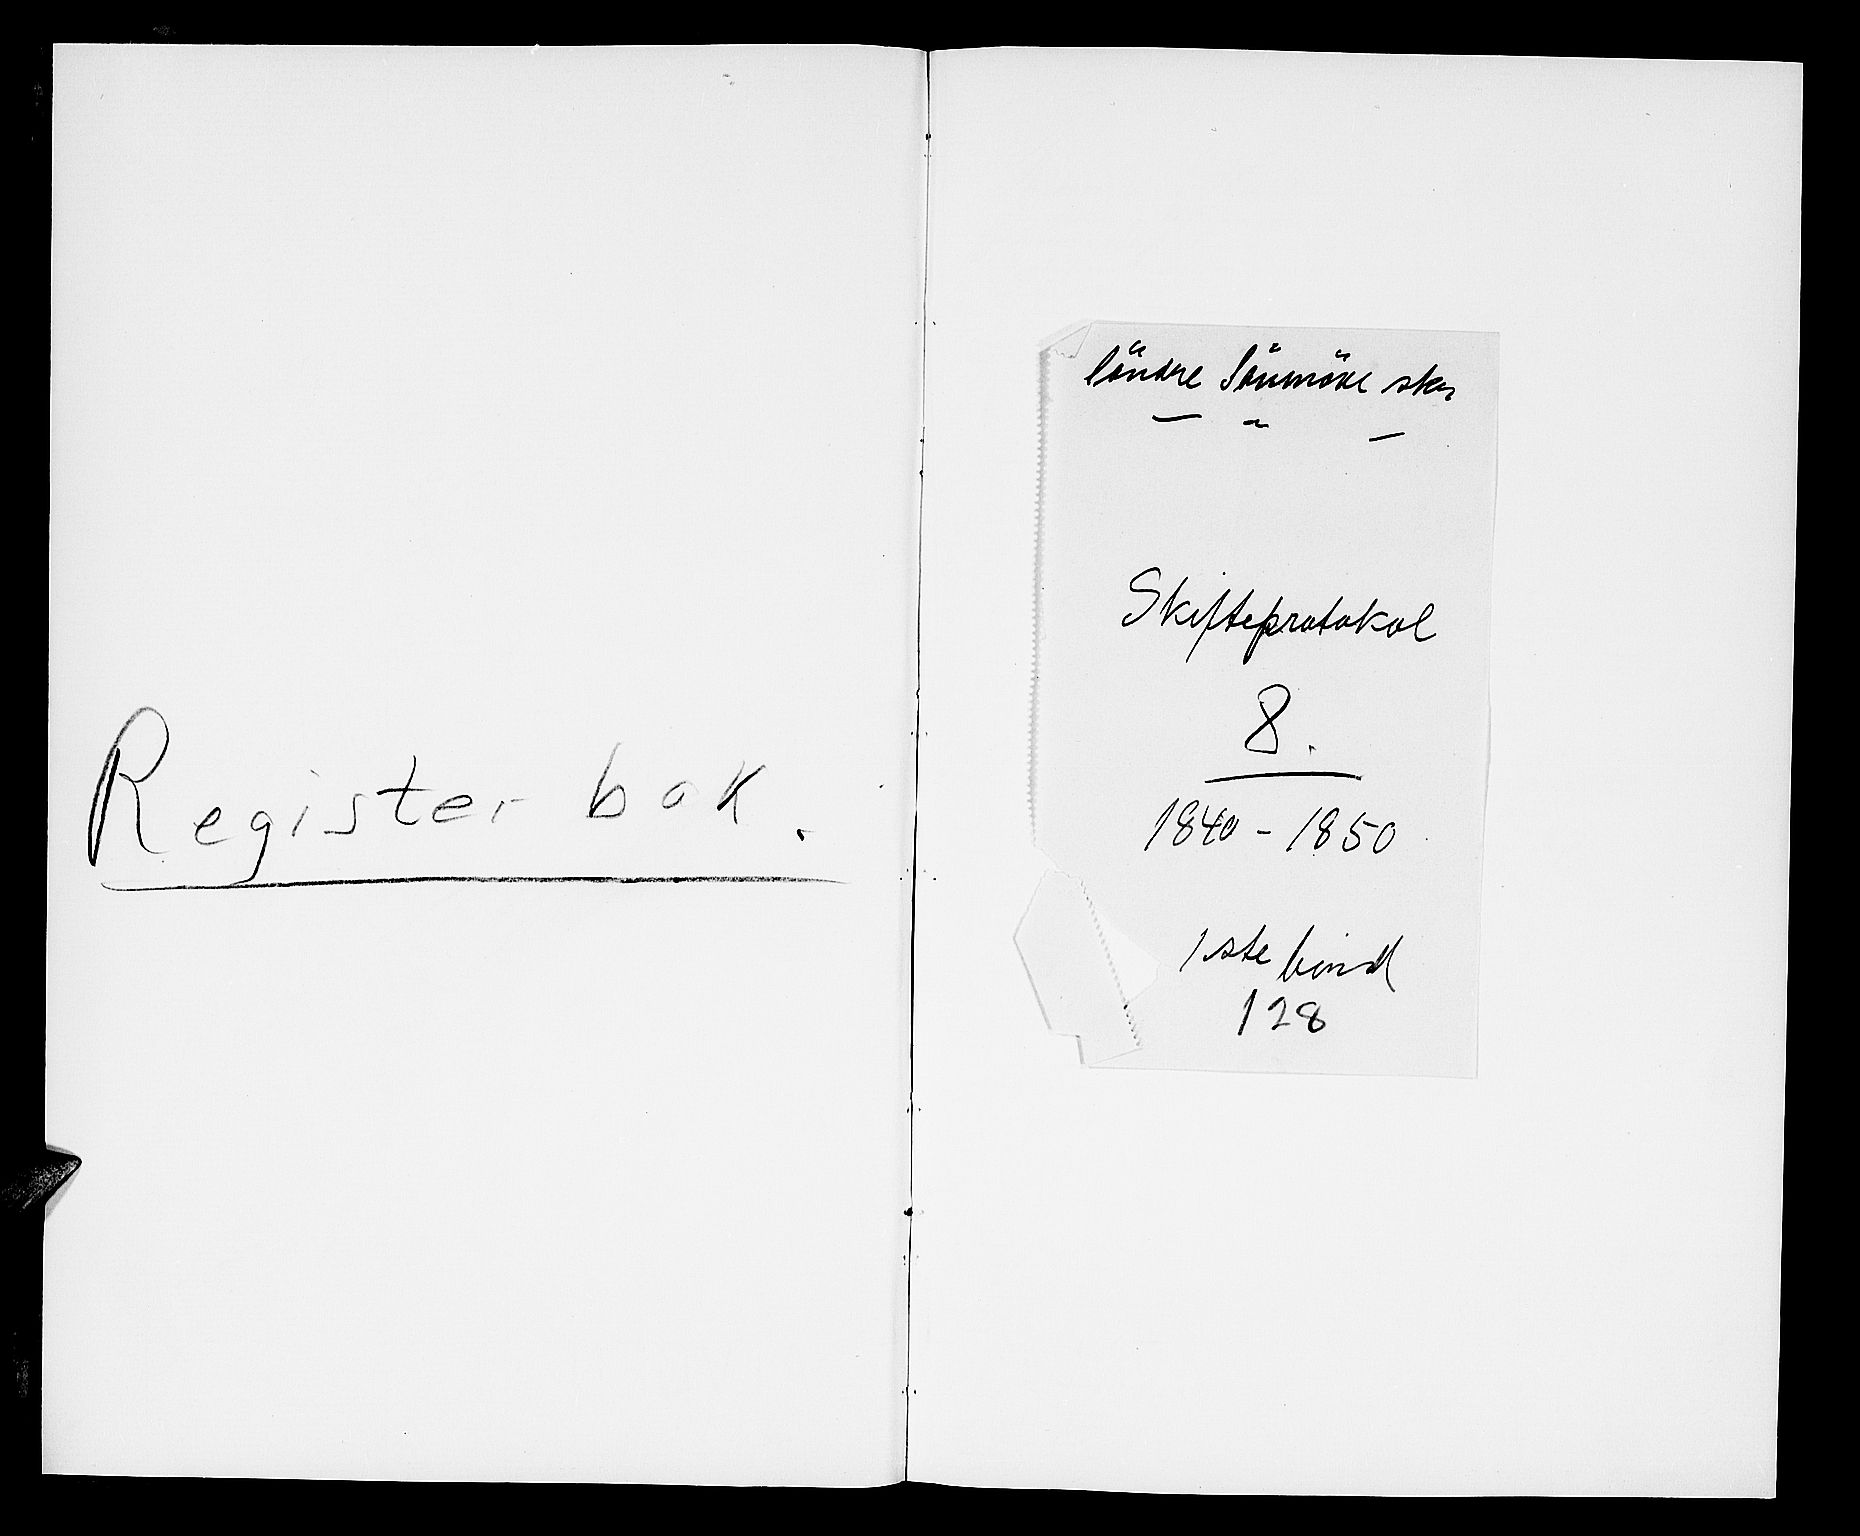 Register bok.
Söndre Sönmöre skr
Skifteprotokol
8.
1840 - 1850
1ste bind
128